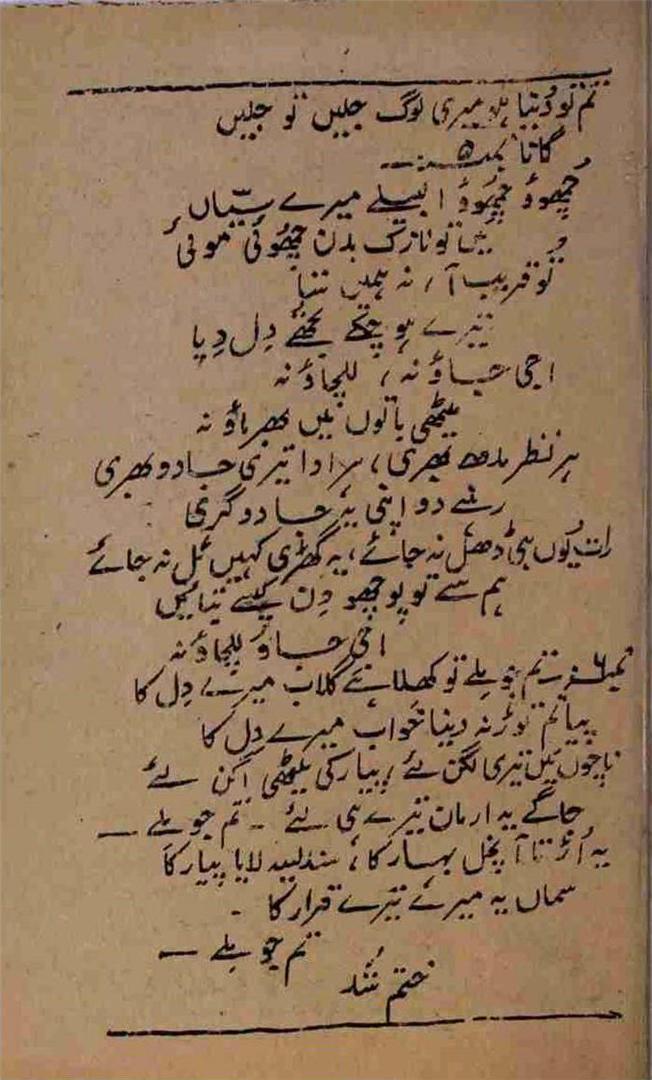 تم تو دُنیا ہو میری لوگ جلیں تو جلیں
گانا نمبر ۵
چھوڑ چھوڑ البیلے میرے سیّاں
میں تو نازک بدن چھوئی موئی
تو قریب آ، نہ ہمیں بنا
تیرے ہو چکے تجھے دِل دِیا
اجی جاؤ نہ، للچاؤ نہ
میٹھی باتوں میں بھرماؤ نہ
ہر نظر مدھ بھری، ہر ادا تیری جادو بھری
رہنے دو اپنی یہ جادوگری
رات یُوں ہی ڈھل نہ جائے، یہ گھڑی کہیں ٹل نہ جائے
ہم سے تو پوچھو دِن کیسے بتائیں
اجی جاؤ للچاؤ نہ
نمبر ۶ تم جو ملے تو کھِلا ہے گلاب میرے دِل کا
پیا تم توڑ نہ دینا خواب میرے دِل کا
ناچوں میں تیری لگن لئے، پیار کی میٹھی اگن لئے
جاگے یہ ارمان تیرے ہی لئے ۔ تم جو ملے —
یہ اُڑتا آنچل بہار کا، سندیسہ لایا پیار کا
سماں یہ میرے تیرے قرار کا ۔
تم جو ملے —
ختم شُد